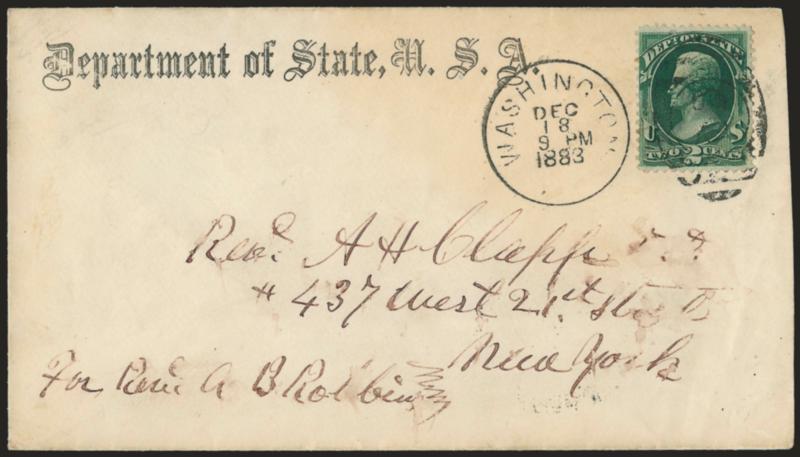 Department of State, U. S. A.
WASHINGTON
DEC
18
9 PM
1883
DEPT. OF STATE
U S
TWO 2 CENTS
Revd. A H Clapp D. D.
# 437 West 21st Street
New York
For Revd. A B Robbins